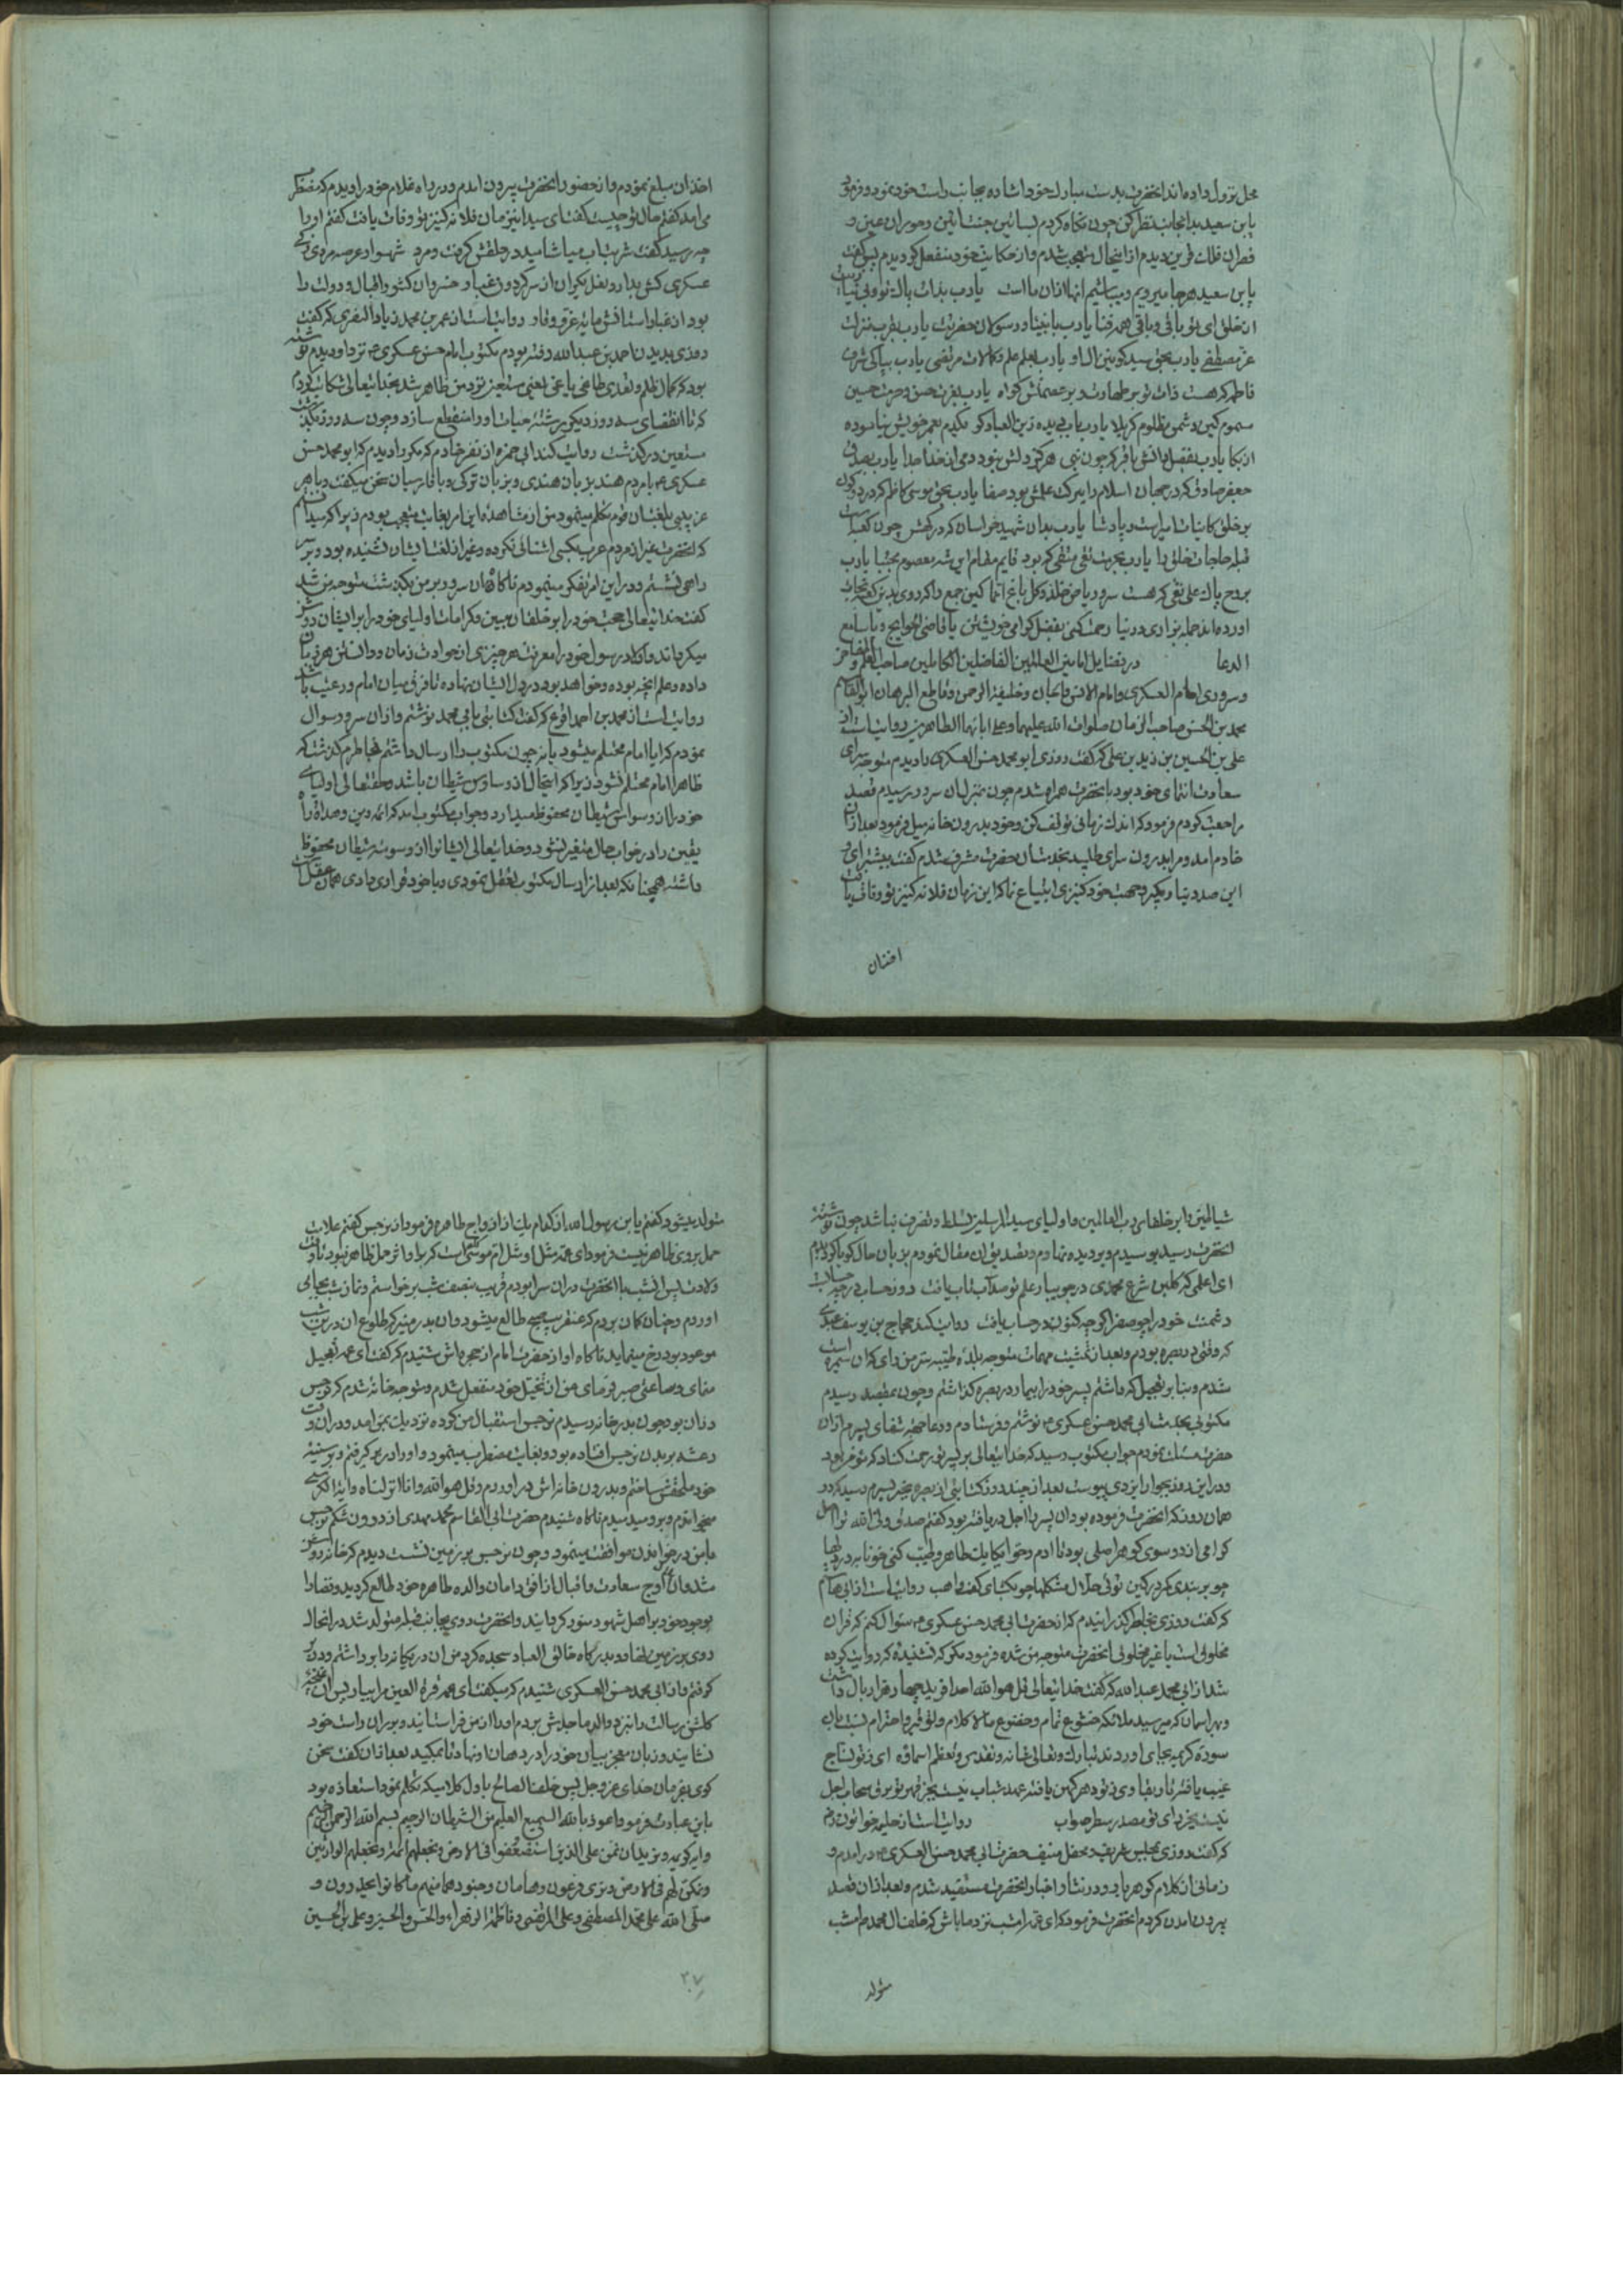 محل نزول داده اند انحضرت بدست مبارك خود اشاره بجانب راست خود نمود و فرمود
يابن سعيد بدانجانب نظر كن چون نگاه كردم بساتين جنت ائين و حوران عين و
قطران فلات قرين ديدم از اينحال متعجب شدم و از حكايت خود منفعل كرديدم پس گفت
يابن سعيد هر جا ميرويم و ميباشيم انها ازان ما است يارب بذات پاك تو
ان خلق اى تو باقى و باقى همه فنا يارب بانبيا و رسولان حضرتت يارب بقرب منزلت
عز مصطفى يارب بحق سيد كونين ال او يارب بعلم علم كمالات مرتضى يارب بپاكى شرف
فاطمه كه هست ذات تو بر طهارت و بر عصمتش كواه يارب بعزت حسن و حرمت حسين
مسموم كين دشمن و مظلوم كربلا يارب باب ديده زين العباد كو يكدم بعمر خويش نياسوده
از بكا يارب بفضل دانش باقر كه چون نبى هركز دلش نبود دمى از خدا جدا يارب بصدق
جعفر صادق كه در جهان اسلام را ببركت علمش بود صفا يارب بحق موسى كاظم كه در دو كون
بر خلق كاينات امير است و پادشا يارب بدان شهيد خراسان كه دركهش چون كعبه است
قبله حاجات خلق را يارب بحرمت تقى متقى كه بود قايم مقام اين شه معصوم مجتبا يارب
بروح پاك على نقى كه هست سرو رياض خلد و كل باغ انما
اورده اند جمله بزارى و در دنيا رحمت كنى بفضل كرامى خويشتن يا قاضى الحوايج و يا سامع
الدعا در فضايل امامين العالمين الفاضلين الكاملين صاحب العلم و المفاخر
و سرورى امام العسكرى و امام الانس و الجان و خليفة الرحمن و قاطع البرهان ابو القاسم
محمد بن الحسن صاحب الزمان صلوات الله عليهما و على ابائهما الطاهرين روايت است از
على بن الحسين بن زيد بن على كه كفت روزى ابو محمد حسن العسكرى را ديدم متوجه سراى
سعادت انتماى خود بود با انحضرت همراه شدم چون بمنزل ان سرور رسيدم قصد
مراجعت كردم فرمود كه اندك زمانى توقف كن و خود بدرون خانه ميل فرمود بعد ازان
خادم امد و مرا بدرون سراى طلبيد بخدمت ان حضرت مشرف شدم كفت پيشتر اى و
اين صد دينار بكير و جهت خود كنيزى ابتياع نما كه اين زمان فلانه كنيز تو وفات يافت
اخذ ان
اخذ ان مبلغ نمودم و از حضور انحضرت بيرون امدم و در راه غلام خود را ديدم كه مضطر
مى امد كفتم حال تو چيست كفت اى سيد اين زمان فلانه كنيز تو وفات يافت كفتم او را
چه رسيد كفت شربت اب مياشاميد در حلقش كرفت و مرد شهسوار عرصه مردى
عسكرى كش بدارد نعل يكران از سر كردون غبار خسروان كشور اقبال و دولت را
بود از غبار استانش مايه عز و وقار روايت است از عمر بن محمد زياد الصفرى كه كفت
روزى بديدن احمد بن عبدالله رفته بودم مكتوب امام حسن عسكرى ع نزد او ديدم نوشته
بود كه كمال ظلم و تعدى طاغى ياغى يعنى مستعين نزد من ظاهر شد بخدايتعالى شكايت كردم
كه تا انقضاى سه روز ديكر رشته حيات او را منقطع سازد و چون سه روز بكذشت
مستعين دركذشت روايت كند ابى حمزه از نصر خادم كه مكرر ديدم كه ابو محمد حسن
عسكرى ع با مردم هند بزبان هندى و بزبان توركى و با فارسيان سخن ميكفت و با هر
عزيزى بلغت ان قوم تكلم مينمود من از مشاهده اين امر بغايت متعجب بودم زيرا كه ميدانستم
كه انحضرت غير از مردم عرب بكسى اشنائى نكرده و غير از لغت ايشان نشنيده بود و بر سر
راهى نشستم و در اين امر تفكر مينمودم ناكاه ان سرور بر من بكذشت متوجه من شد
كفت خدايتعالى حجت خود را بر خلقان مبين و كرامات اولياى خود را بر ايشان روشن
ميكرداند و اولاد رسول خود را معرفت هر چيزى از حوادث زمان و دانستن هر زبان
داده و علم انچه بوده و خواهد بود در دل ايشان نهاده تا فرقى ميان امام و رعيت باشد
روايت است از محمد بن احمد اقرع كه كفت كتابتى بابى محمد نوشتم و ازان سرور سوال
نمودم كه ايا امام محتلم ميشود يا نه چون مكتوب را ارسال داشتم بخاطرم كذشت كه
ظاهرا امام محتلم نشود زيرا كه اينحال از وساوس شيطان باشد و حقتعالى اولياى
خود را از وسواس شيطان محفوظ ميدارد و جواب مكتوب امد كه ائمه دين و هداة راه
يقين را در خواب حال متغير نشود و خدايتعالى ايشانرا از وسوسه شيطان محفوظ
داشته همچنانكه بعد از ارسال مكتوب تعقل نمودى و با خود قرار دادى همان عقل
شياطين را بر خلفاى رب العالمين و اولياى سيد المرسلين تسلط و تصرف نباشد چون نوشته
انحضرت رسيد بوسيدم و بر ديده نهادم و تصديق ان مقال نمودم بزبان حال كويا كرديدم
اى اعلمى كه كلبن شرع محمدى در جويبار علم تو صد اب و تاب يافت روز حساب
دشمنت خود را چو صفر اكرچه كنون در حساب يافت روايت كند حجاج بن يوسف عبدى
كه وقتى در بصره بودم و بعد از تمشيت مهمات متوجه بلده طيبه سر من راى كه ان سامره است
شدم و بنا بر تعجيل كه داشتم پسر خود را بيمار در بصره كذاشتم و چون بمقصد رسيدم
مكتوبى بخدمت ابى محمد حسن عسكرى ع نوشتم و فرستادم و دعا جهت شفاى پسرم ازان
حضرت مسئلت نمودم جواب مكتوب رسيد كه خدايتعالى بر پسر تو رحمت كناد كه مؤمن بود
و در اين روز بجوار ايزدى پيوست بعد از چند روز كتابتى از بصره بخبر پسرم رسيد كه در
همان روز كه انحضرت فرموده بود ان پسر را اجل دريافته بود كفتم صدق ولى الله
كرامى از دو سوى كوهر اصلى بود تا ادم و حوا يكايك طاهر و طيب
چو بربندى كمر در كين توئى حلال مشكلها چو بكشاى كف واهب روايت است از ابى هاشم
كه كفت روزى بخاطر كذرانيدم كه از حضرت ابى محمد حسن عسكرى ع سؤال كنم كه قران
مخلوق است يا غير مخلوق انحضرت متوجه من شده فرمود مكر كه نشنيده كه روايت كرده
شد از ابى محمد عبدالله كه كفت خدايتعالى قل هو الله احد افريد چهار هزار بال داشت
و بهر اسمان كه ميرسيد ملائكه خشوع تمام و خضوع ما لا كلام و توقير و احترام نسبت بان
سوره كريمه بجاى اوردند تبارك و تعالى شانه و تقدس و تعظم اسماؤه اى ز تو نساج
غيب يافته تار بقا وى ز تو دهر كهن يافته عهد شباب نيست بجز قهر تو برق سحاب اجل
نيست بجز راى تو مصدر سطر صواب روايت است از حليمه خواتون رض
كه كفت روزى بمجلس شريف و محفل منيف حضرت ابى محمد حسن العسكرى ع درامدم و
زمانى از كلام كوهربار و درر نثار اخبار انحضرت مستفيد شدم و بعد ازان قصد
بيرون امدن كردم انحضرت فرمود كه اى عمه امشب نزد ما باش كه خلف ال محمد ص امشب
متولد
متولد ميشود كفتم يابن رسول الله از كدام يك از ازواج طاهره فرمود از نرجس كفتم علامت
حمل بر وى ظاهر نيست فرمود اى عمه مثل او مثل ام موسى است كه بر او اثر حمل ظاهر نبود تا وقت
ولادت پس انشب با انحضرت دران سرا بودم قريب بنصف شب برخواستم و نماز شب بجاى
اوردم و چنان كمان بردم كه عنقريب صبح طالع ميشود و ان بدر منير كه طلوع ان در اين شب
موعود بود رخ مينمايد ناكاه اواز حضرت امام از حجره اش شنيدم كه كفت اى عمه تعجيل
منماى و ساعتى صبر فرماى من ازان تخيل خود منفعل شدم و متوجه خانه شدم كه نرجس
دران بود چون بدر خانه رسيدم نرجس استقبال من كرده نزديك بمن امد و دران وقت
رعشه بر بدن نرجس افتاده بود و بغايت مضطرب مينمود و او را در بر كرفتم و بسينه
خود ملحقش ساختم و بدرون خانه اش دراوردم و قل هو الله و انا انزلناه و اية الكرسى
ميخواندم و بر وى ميدميدم ناكاه شنيدم حضرت ابى القاسم محمد مهدى از درون شكم نرجس
با من در خواندن موافقت مينمود و چون نرجس بر زمين نشست ديدم كه خانه روشن
شد و ان اوج سعادت و اقبال از افق دامان والده طاهره خود طالع كرديد و فضا را
بوجود خود بر اهل شهود منور كردانيد و انحضرت روى بجانب قبله متولد شد در انحال
روى بر زمين نهاد و بدركاه خالق العباد سجده كرد من ان در يكانه را برداشتم و در بر
كرفتم و از ابى محمد حسن العسكرى شنيدم كه ميكفت اى عمه قرة العين مرا بيار پس ان غنچه
كلشن رسالت را نزد والد ماجدش بردم او را از من فراستانيد و بر ران راست خود
نشانيد و زبان معجز بيان خود را در دهان او نهاد تا بمكيد بعد ازان كفت سخن
كوى بفرمان خداى عز و جل پس خلفنا الصالح باول كلاميكه تكلم نمود استعاذه بود
باين عبادت فرمود اعوذ بالله السميع العليم من الشيطان الرجيم بسم الله الرحمن الرحيم
و ايه كريمه و نريد ان نمن على الذين استضعفوا فى الارض و نجعلهم ائمة و نجعلهم الوارثين
و نمكن لهم فى الارض و نرى فرعون و هامان و جنودهما منهم ما كانوا يحذرون و
صلى الله على محمد المصطفى و على المرتضى و فاطمة الزهراء و الحسن و الحسين و على بن الحسين
٢٠٧